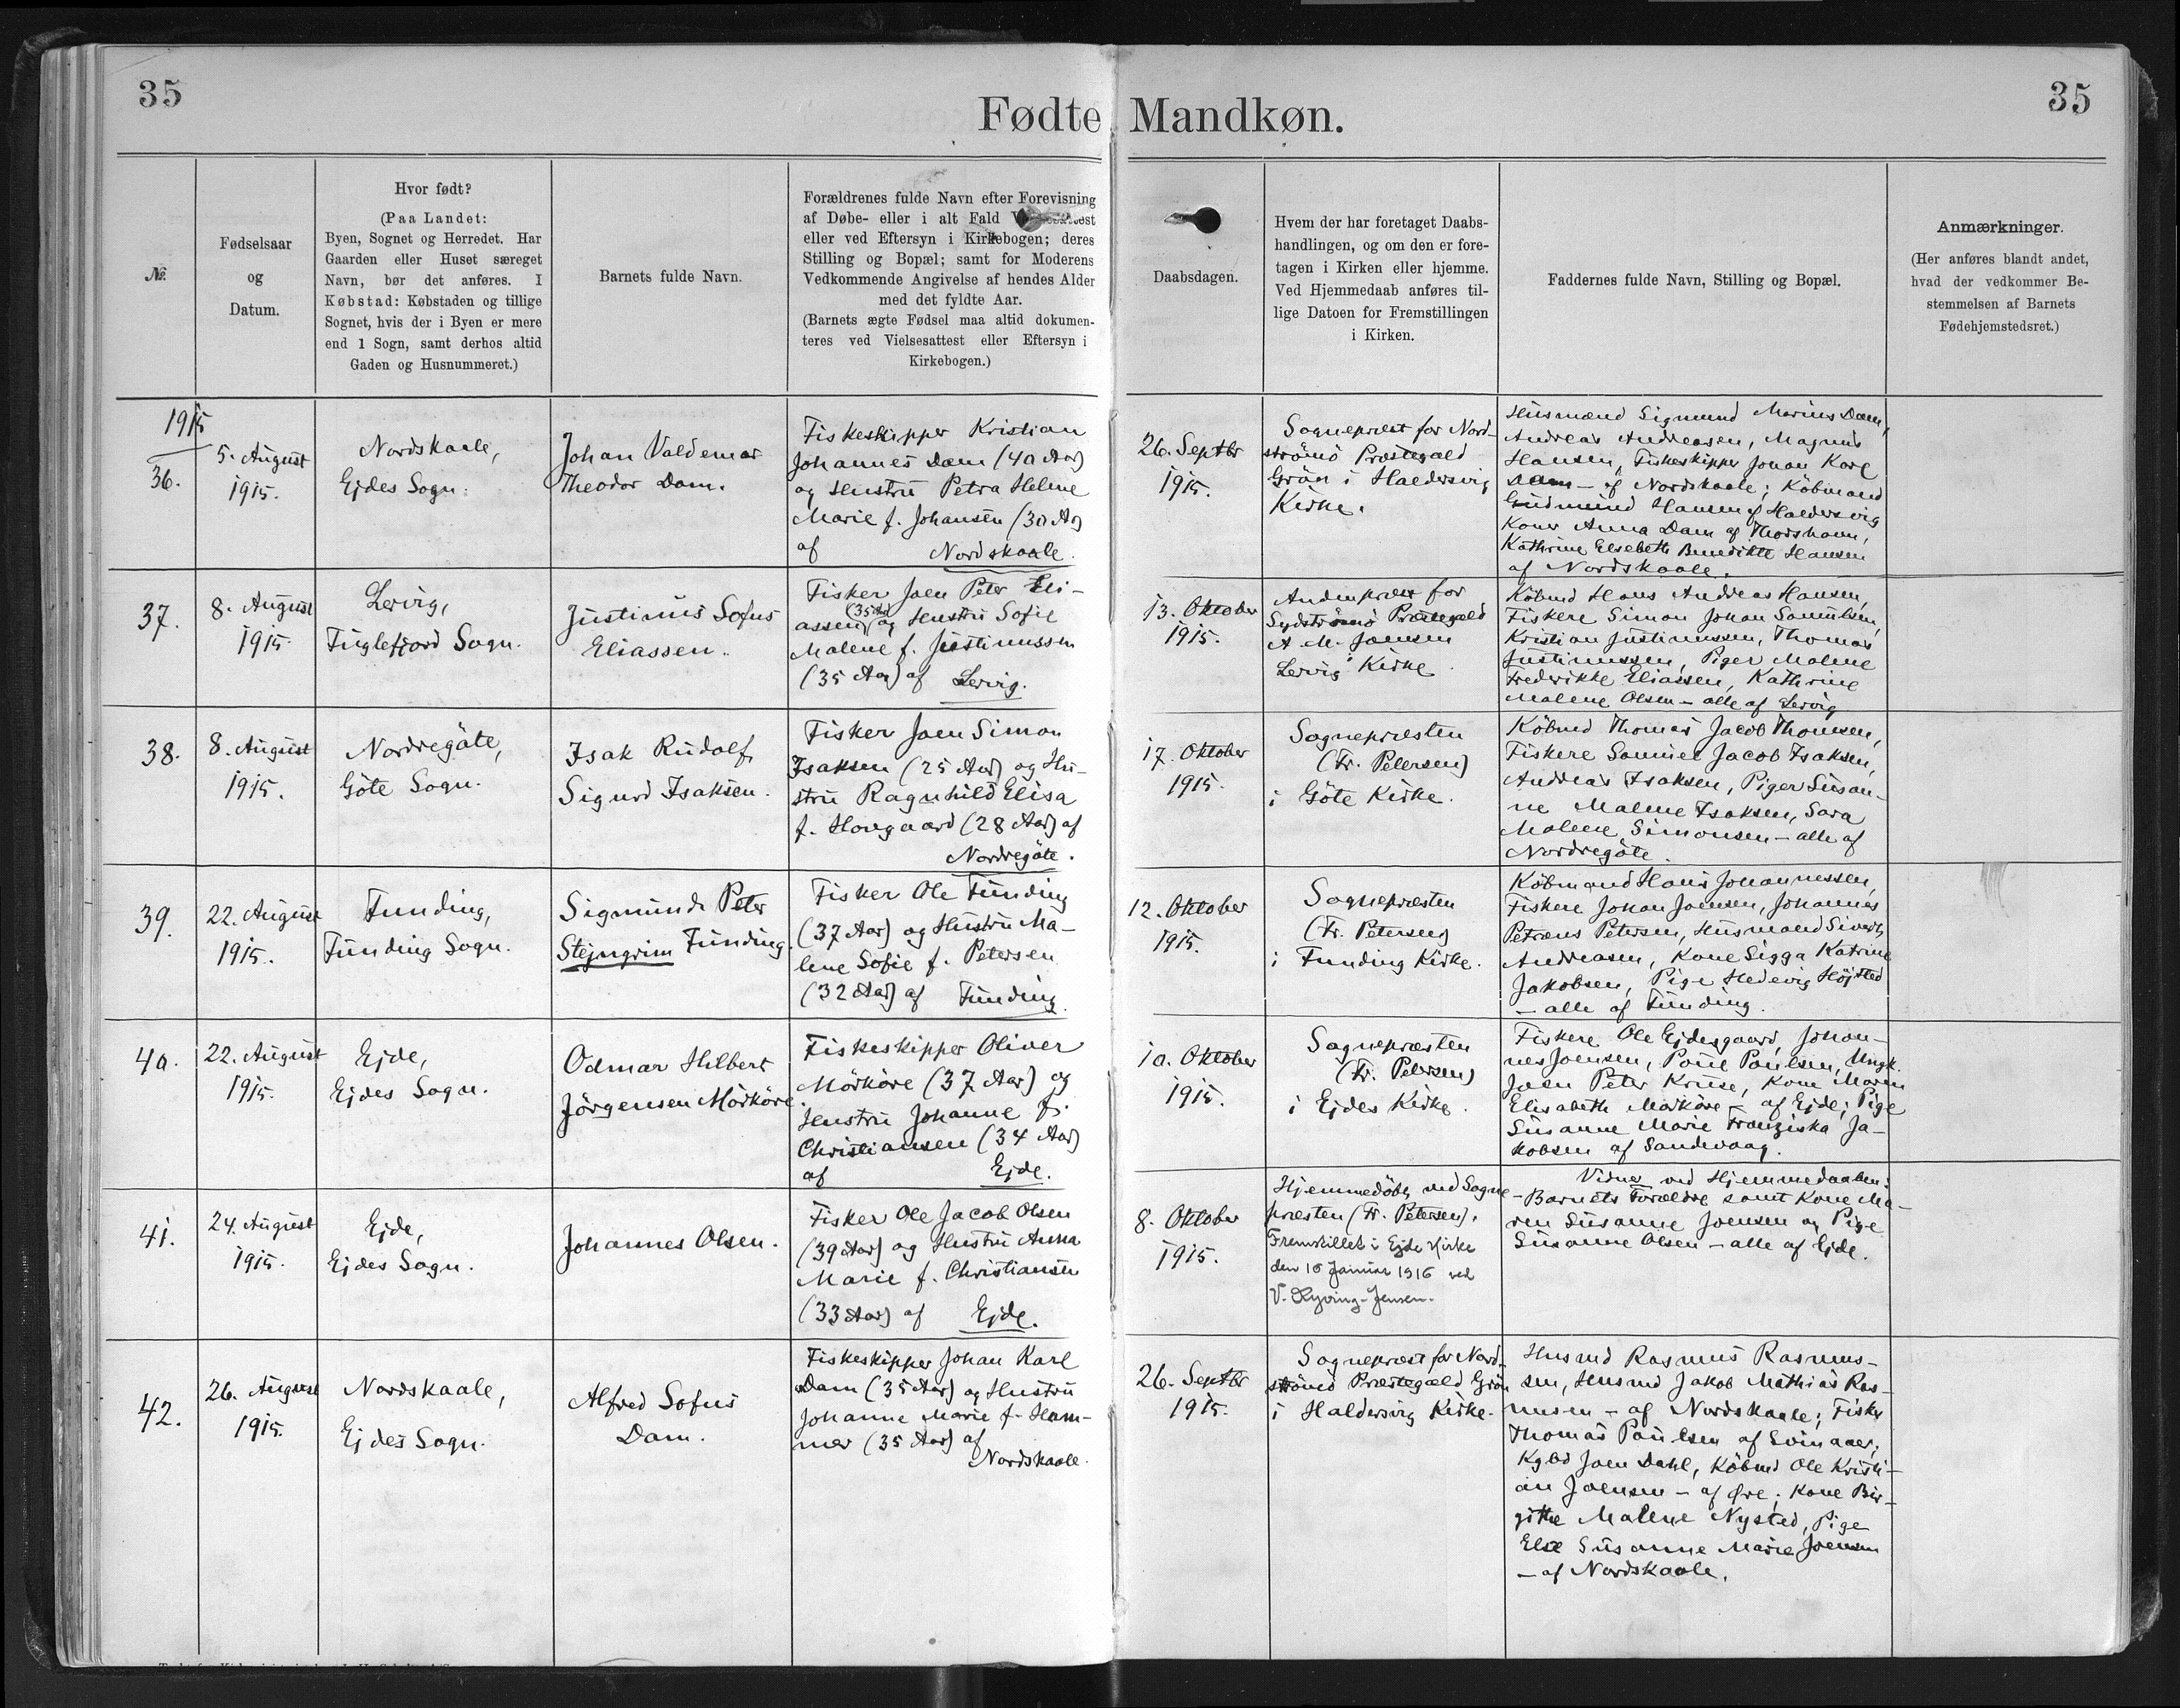 35
Fødte Mandkøn.
35
№.
Fødselsaar
og
Datum.
Hvor født?
(Paa Landet:
Byen, Sognet og Herredet. Har
Gaarden eller Huset særeget
Navn, bør det anføres. I
Købstad: Købstaden og tillige
Sognet, hvis der i Byen er mere
end 1 Sogn, samt derhos altid
Gaden og Husnummeret.)
Barnets fulde Navn.
Forældrenes fulde Navn efter Forevisning
af Døbe- eller i alt Fald
eller ved Eftersyn i Kirkebogen; deres
Stilling og Bopæl; samt for Moderens
Vedkommende Angivelse af hendes Alder
med det fyldte Aar.
(Barnets ægte Fødsel maa altid dokumen-
teres ved Vielsesattest eller Eftersyn i
Kirkebogen.)
Daabsdagen.
Hvem der har foretaget Daabs-
handlingen, og om den er fore-
tagen i Kirken eller hjemme.
Ved Hjemmedaab anføres til-
lige Datoen for Fremstillingen
i Kirken.
Faddernes fulde Navn, Stilling og Bopæl.
Anmærkninger.
(Her anføres blandt andet,
hvad der vedkommer Be-
stemmelsen af Barnets
Fødehjemstedsret.)
1915
36.
5. August
1915.
Nordskaale,
Ejdes Sogn.
Johan Valdemar
Theodor Dam.
Fiskeskipper Kristian
Johannes Dam (40 Aar)
og Hustru Petra Helene
Marie f. Johansen (30 Aar)
af Nordskaale.
26. Septbr
1915.
Sognepræst for Nord-
strömö Præstegæld
Grön i Haldersvig
Kirke.
Husmænd Sigmund Marius Dam,
Andreas Andreasen, Magnus
Hansen, Fiskeskipper Johan Karl
Dam - af Nordskaale; Købmand
Gudmund Hansen af Haldersvig
Koner Anna Dam af Thorshavn,
Kathrine Elsebeth Benedikte Hansen
af Nordskaale.
37.
8. August
1915.
Lervig,
Fuglefjord Sogn.
Justinus Sofus
Eliassen.
Fisker Joen Peter Eli-
assen (35 Aar) og Hustru Sofie
Malene f. Justinussen
(35 Aar) af Lervig.
13. Oktober
1915.
Andenpræst for
Sydströmö Præstegæld
A. M. Jansen
i Lervig Kirke.
Købmd Hans Andreas Hansen,
Fiskere Simon Johan Samuelsen,
Kristian Justinussen, Thomas
Justinussen, Piger Malene
Frederikke Eliassen, Kathrine
Malene Olsen - alle af Lervig
38.
8. August
1915.
Nordregöte,
Göte Sogn.
Isak Rudolf
Sigurd Isaksen.
Fisker Joen Simon
Isaksen (25 Aar) og Hu-
stru Ragnhild Elisa
f. Hovgaard (28 Aar) af
Nordregöte.
17. Oktober
1915.
Sognepræsten
(Fr. Petersen)
i Göte Kirke.
Købmd Thomas Jacob Thomsen,
Fiskere Samuel Jacob Isaksen,
Andreas Isaksen, Piger Susan-
ne Malene Isaksen, Sara
Malene Simonsen - alle af
Nordregöte.
39.
22. August
1915.
Funding,
Funding Sogn.
Sigmund Peter
Stejngrim Funding.
Fisker Ole Funding
(37 Aar) og Hustru Ma-
lene Sofie f. Petersen
(32 Aar) af Funding.
12. Oktober
1915.
Sognepræsten
(Fr. Petersen)
i Funding Kirke.
Købmand Hans Johannessen,
Fiskere Johan Joensen, Johannes
Petræus Petersen, Husmand Sivert
Andreasen, Kone Sigga Katrine
Jakobsen, Pige Hedevig Højsted
- alle af Funding.
40.
22. August
1915.
Ejde,
Ejdes Sogn.
Odmar Hilbert
Jörgensen Mörköre.
Fiskeskipper Oliver
Mörköre (37 Aar) og
Hustru Johanne f.
Christiansen (34 Aar)
af Ejde.
10. Oktober
1915.
Sognepræsten
(Fr. Petersen)
i Ejdes Kirke.
Fiskere Ole Ejdesgaard, Johan-
nes Joensen, Poul Poulsen, Ungk.
Joen Peter Kruse, Kone Maren
Elisabeth Mörköre - af Ejde; Pige
Susanne Marie Franziska Ja-
kobsen af Sandevaag.
41.
24. August
1915.
Ejde,
Ejdes Sogn.
Johannes Olsen.
Fisker Ole Jacob Olsen
(39 Aar) og Hustru Anna
Marie f. Christiansen
(33 Aar) af Ejde.
8. Oktober
1915.
Hjemmedöbt ved Sogne-
præsten (Fr. Petersen).
Fremstillet i Ejde Kirke
den 16 Januar 1916 ved
V. Jensen.
Vidner ved Hjemmedaaben:
Barnets Forældre samt Kone Ma-
ren Susanne Joensen og Pige
Susanne Olsen - alle af Ejde.
42.
26. August
1915.
Nordskaale,
Ejdes Sogn.
Alfred Sofus
Dam.
Fiskeskipper Johan Karl
Dam (35 Aar) og Hustru
Johanne Marie f. Ham-
mer (35 Aar) af
Nordskaale.
26. Septbr
1915.
Sognepræst for Nord-
strömö Præstegæld Grön
i Haldersvig Kirke.
Husmd Rasmus Rasmus-
sen, Husmd Jakob Mathias Ras-
mussen - af Nordskaale; Fisker
Thomas Poulsen af Svinaaer;
Kgbd Joen Dahl, Købmd Ole Kristi-
an Joensen - af Øre; Kone Bir-
githe Malene Nysted, Pige
Else Susanne Marie Joensen
- af Nordskaale.